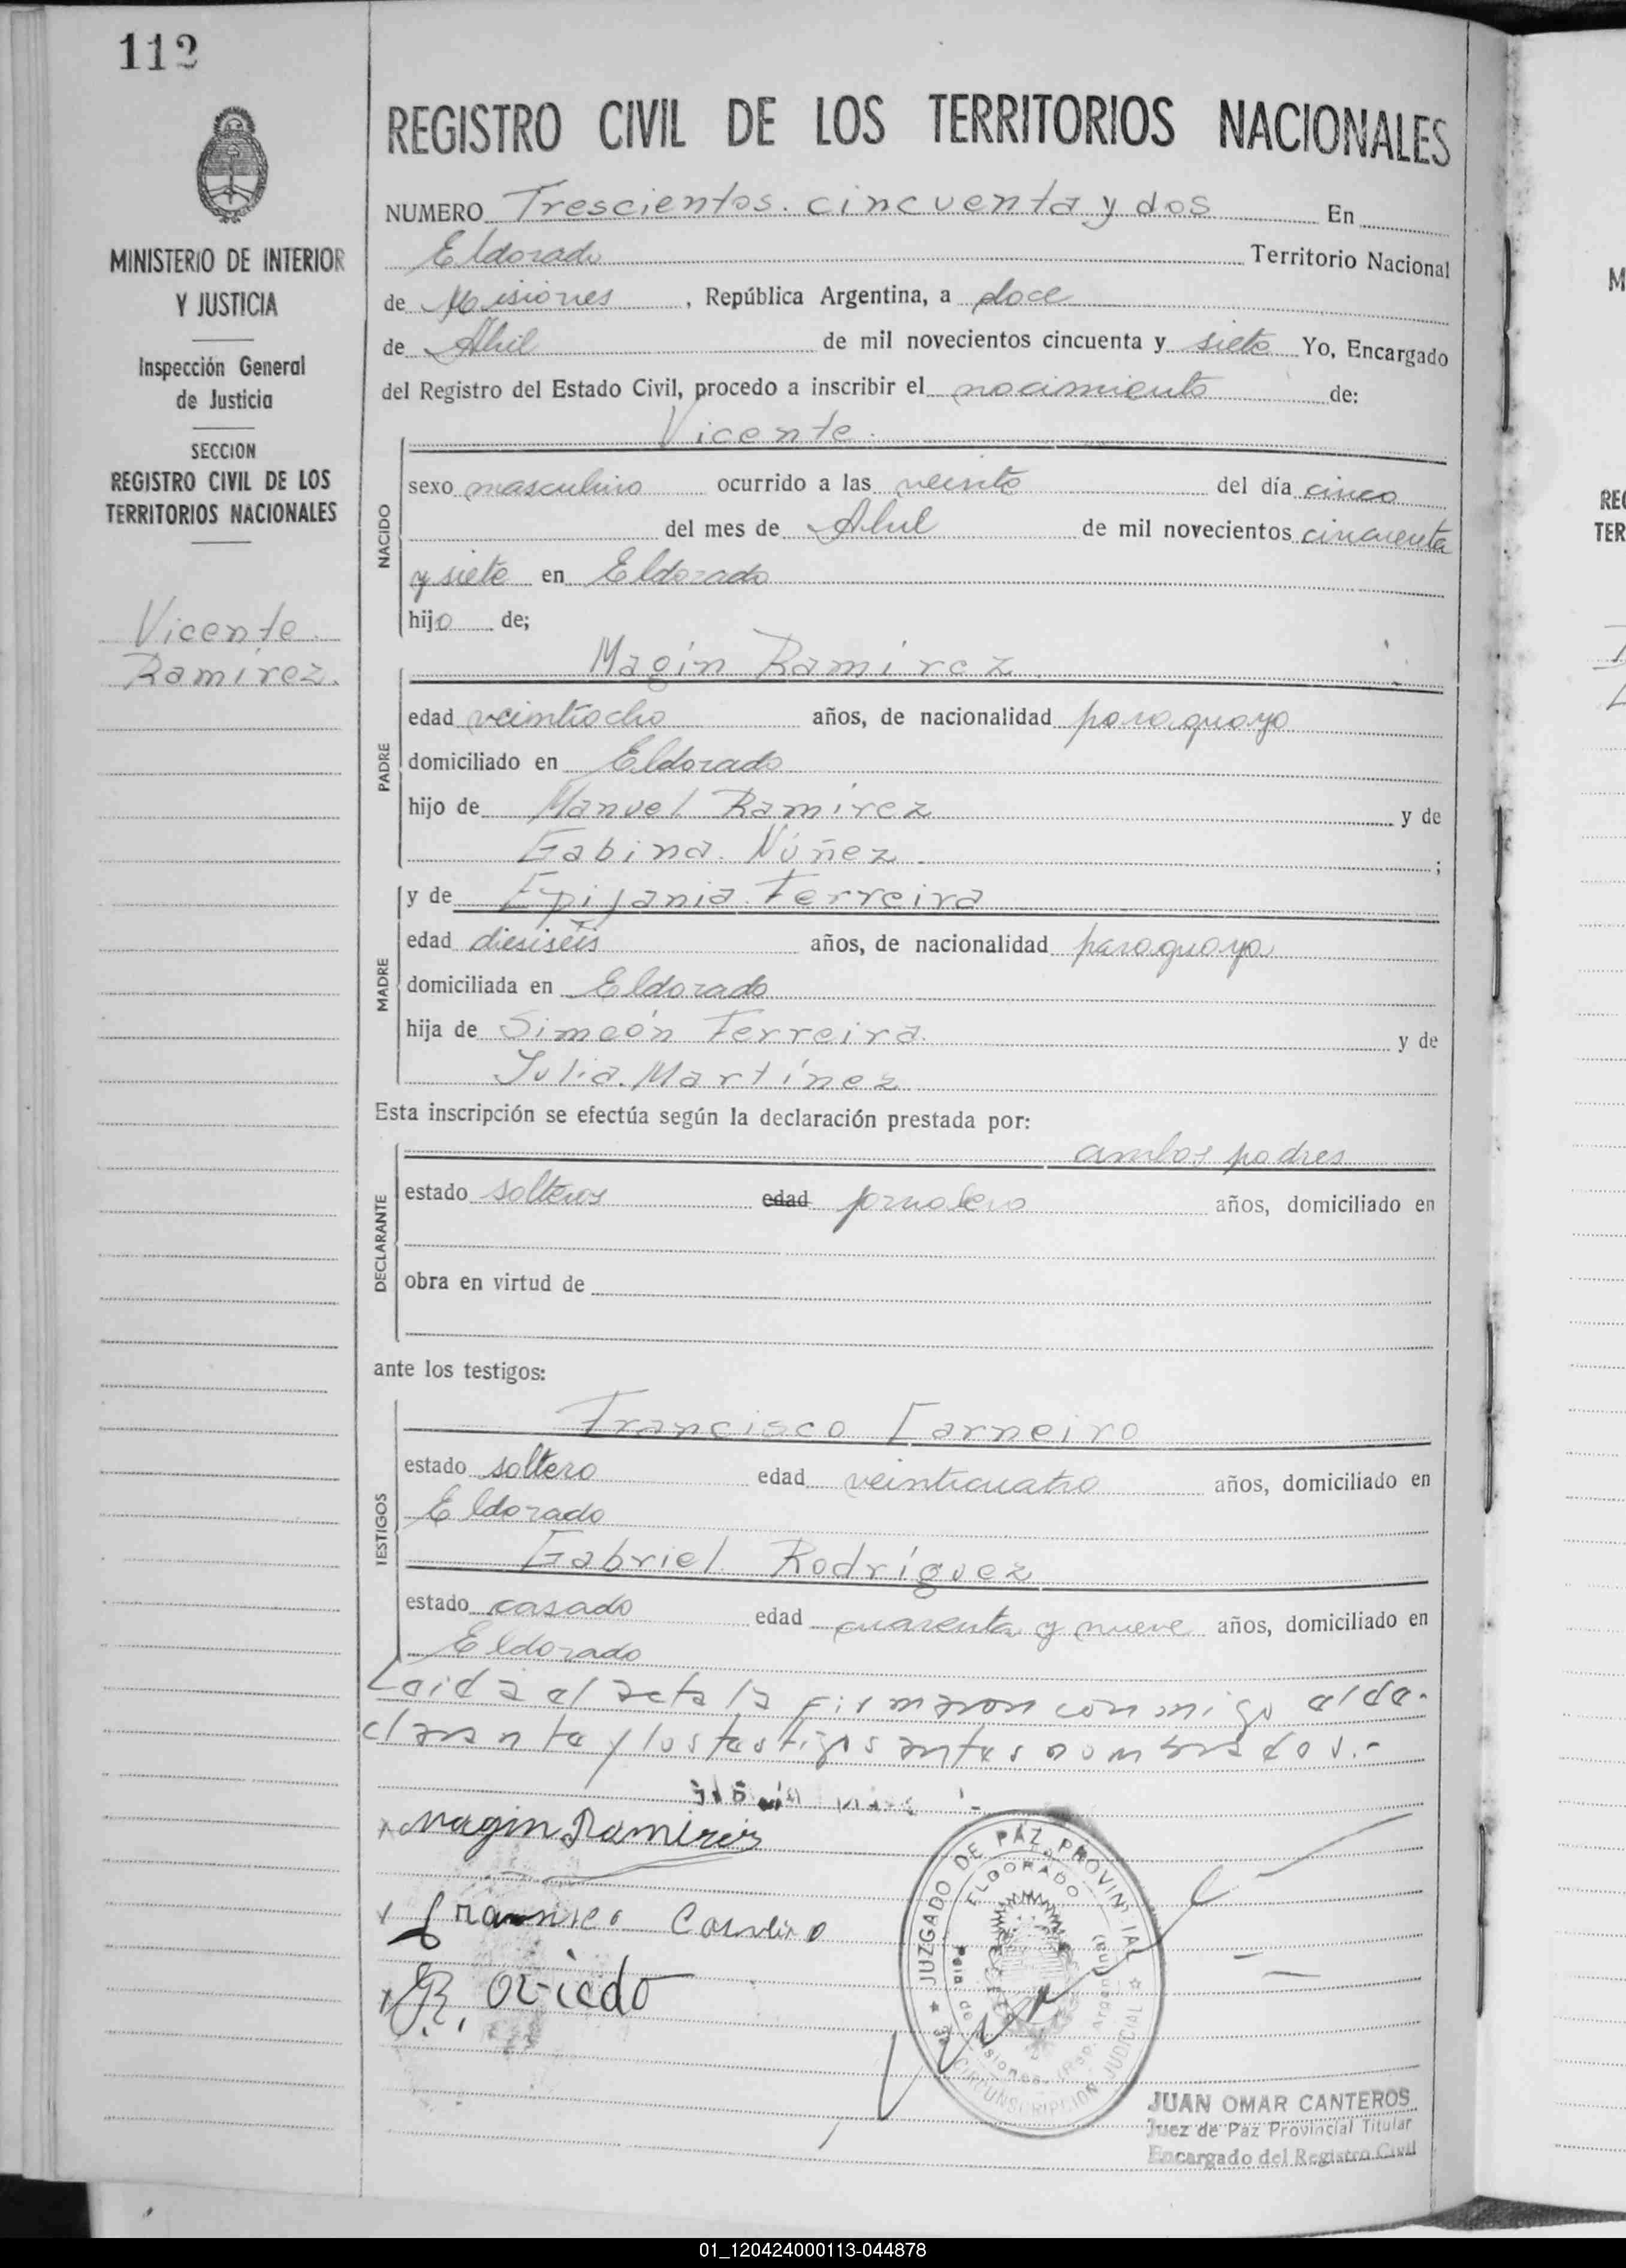 112
MINISTERIO DE INTERIOR
Y JUSTICIA
Inspección General
de Justicia
SECCION
REGISTRO CIVIL DE LOS
TERRITORIOS NACIONALES
Vicente
Ramírez.
REGISTRO CIVIL DE LOS TERRITORIOS NACIONALES
NUMERO Trescientos cincuenta y dos En
Eldorado Territorio Nacional
de Misiones, República Argentina, a doce
de Abril de mil novecientos cincuenta y siete Yo, Encargado
del Registro del Estado Civil, procedo a inscribir el nacimiento de:
Vicente
NACIDO
sexo masculino ocurrido a las veinte del día cinco
del mes de Abril de mil novecientos cincuenta
y siete en Eldorado
hijo de;
Magín Ramírez
PADRE
edad veintiocho años, de nacionalidad paraguayo
domiciliado en Eldorado
hijo de Manuel Ramírez y de
Gabina Núñez ;
y de Epifania Ferreira
MADRE
edad diesiséis años, de nacionalidad paraguaya
domiciliada en Eldorado
hija de Simeón Ferreira y de
Julia Martínez
Esta inscripción se efectúa según la declaración prestada por:
ambos padres
DECLARANTE
estado solteros edad jornalero años, domiciliado en
obra en virtud de
ante los testigos:
Francisco Carneiro
TESTIGOS
estado soltero edad veinticuatro años, domiciliado en
Eldorado
Gabriel Rodríguez
estado casado edad cuarenta y nueve años, domiciliado en
Eldorado
Leida el acta la firmaron conmigo el de-
clarante y los testigos antes nombrados.-
Magin Ramirez
Carneiro
R. Oviedo
JUZGADO DE PAZ PROVINCIAL
ELDORADO
CIRCUNSCRIPCION JUDICIAL
JUAN OMAR CANTEROS
Juez de Paz Provincial Titular
Encargado del Registro Civil
01_120424000113-044878